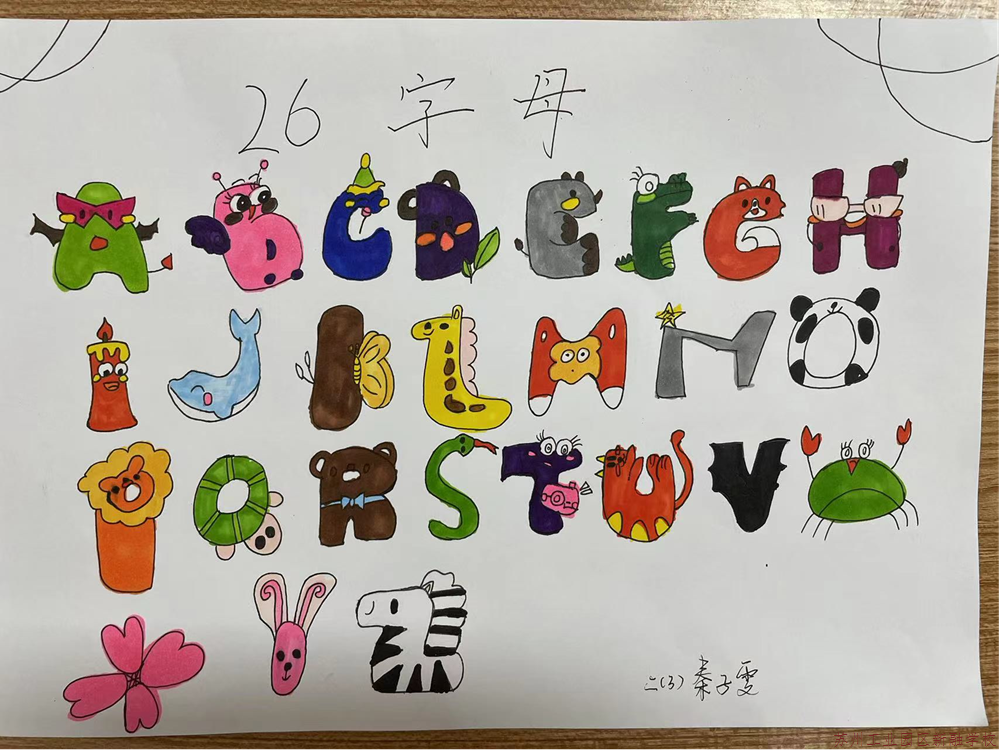 26 字母
A B C D E F G H
i J K L M N O
P Q R S T U V W
X Y Z
二(3) 秦子雯